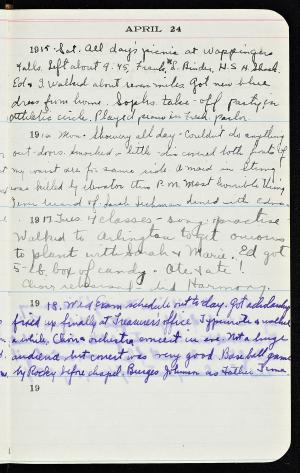 APRIL 24
1915 Sat. All day's picnic at Wappingers
Falls. Left about 9.45, Frank, L. Binder, H.S. H.
Ed & I. Walked about seven miles. Got new blue
dress from home. Sophs take-off party in
athletic circle. Played piano in Fresh. parlor
1916 Mon. Showery all day - Couldn't do anything
out-doors. little
my waist are for same side. A maid in
was killed by elevator this P.M. Most horrible thing
I ever heard of. Sarah dined with Edna.
1917 Tues. 4 classes - song practise
Walked to Arlington to get onions
to plant with Sarah & Marie. Ed got
5-lb. box of candy. Ate & ate!
Choir rehearsal did Harmony.
1918. Wed. Exam schedule out to-day. Got scholarship
fixed up finally at Treasurer's office. Typewrote &
a while. Choir & orchestra concert in eve. Not a huge
audience but concert was very good. Baseball game
by Rocky before chapel. Burges Johnson as Father Time
19